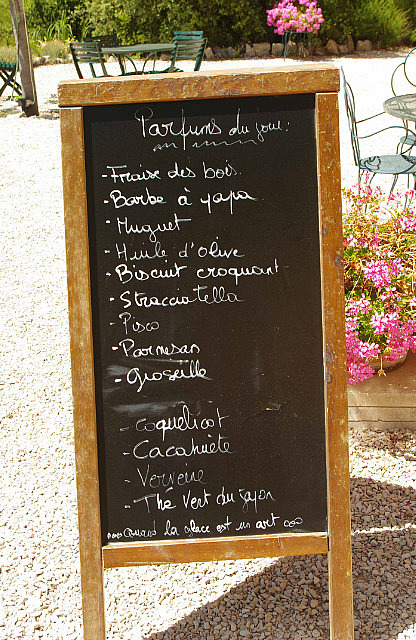 Parfums du jour:
- Fraise des bois.
- Barbe à papa
- Muguet
- Huile d'olive
- Biscuit croquant
- Stracciatella
- Pisco
- Parmesan
- Groseille
- Coquelicot
- Cacahuète
- Verveine
- Thé Vert du japon
Quand la glace est un art